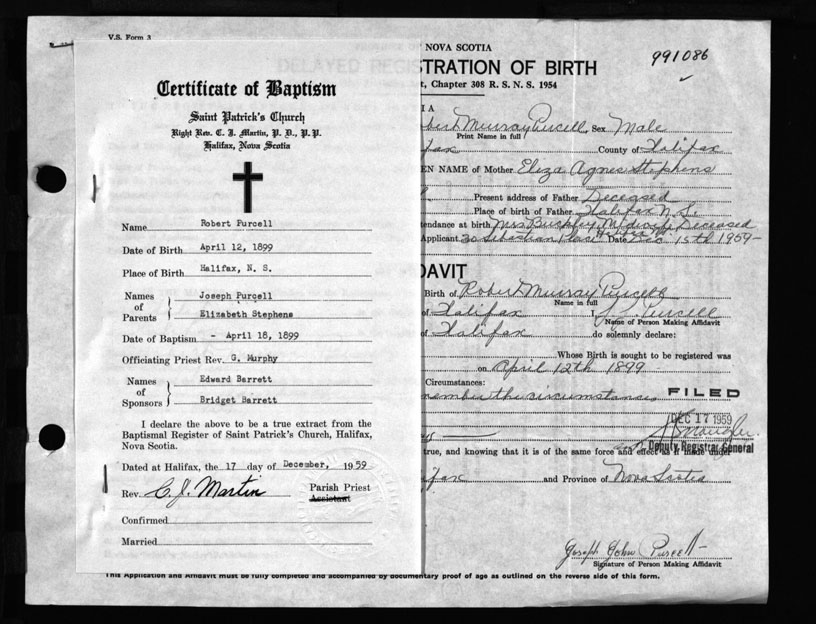 V.S. Form 3
Certificate of Baptism
Saint Patrick's Church
Right Rev. C. J. Martin, P. D., P. P.
Halifax, Nova Scotia
Name Robert Purcell
Date of Birth April 12, 1899
Place of Birth Halifax, N. S.
Names of Parents
Joseph Purcell
Elizabeth Stephens
Date of Baptism - April 18, 1899
Officiating Priest Rev. G. Murphy
Names of Sponsors
Edward Barrett
Bridget Barrett
I declare the above to be a true extract from the
Baptismal Register of Saint Patrick's Church, Halifax,
Nova Scotia.
Dated at Halifax, the 17 day of December, 1959
Rev. C. J. Martin Parish Priest
Assistant
Confirmed
Married
NOVA SCOTIA
991086
DELAYED REGISTRATION OF BIRTH
t, Chapter 308 R. S. N. S. 1954
IA
bert Murray Purcell, Sex Male
Print Name in full
fax County of Halifax
EN NAME of Mother Eliza Agnes Stephens
Present address of Father Deceased
Place of birth of Father Halifax N.S.
tendance at birth Mrs Buckley Midwife Deceased
Applicant 30 Date Dec 15th 1959-
DAVIT
Birth of Robert Murray Purcell
Name in full
of Halifax I, J. J. Purcell
Name of Person Making Affidavit
of Halifax do solemnly declare:
Whose Birth is sought to be registered was
on April 12th 1899
Circumstances:
remember the circumstances
FILED
DEC 17 1959
Deputy Registrar General
true, and knowing that it is of the same force and effect as if made under
fax and Province of Nova Scotia
Joseph John Purcell
Signature of Person Making Affidavit
This Application and Affidavit must be fully completed and accompanied by documentary proof of age as outlined on the reverse side of this form.